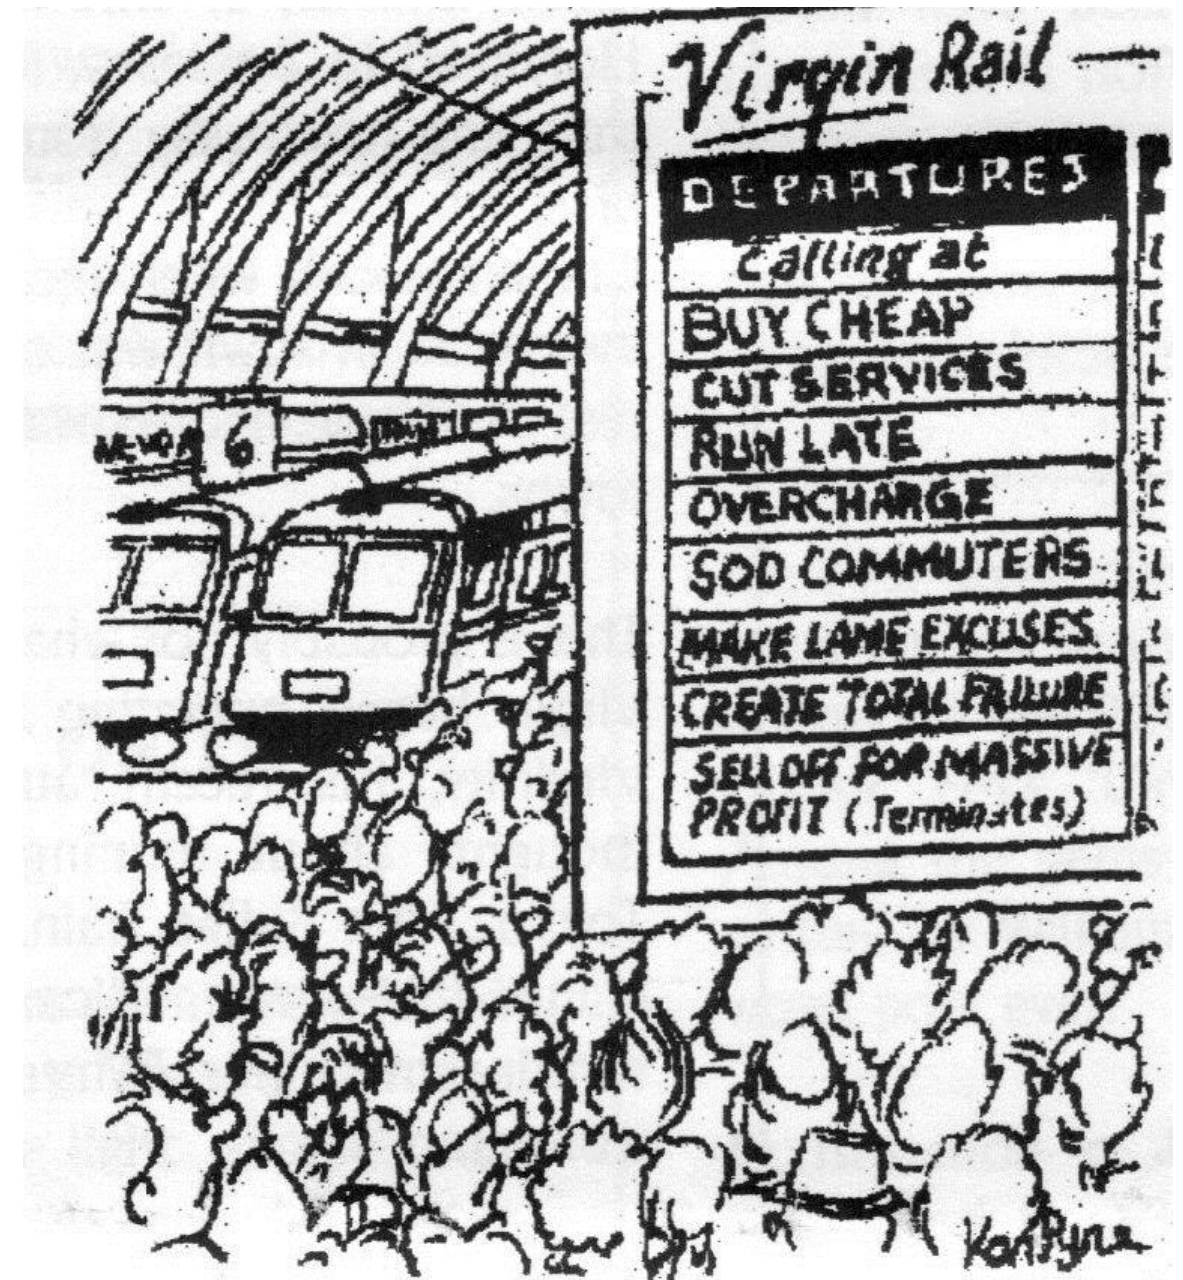 Virgin Rail
DEPARTURES
Calling at
BUY CHEAP
CUT SERVICES
RUN LATE
OVERCHARGE
SOD COMMUTERS
MAKE LAME EXCUSES
CREATE TOTAL FAILURE
SELL OFF FOR MASSIVE
PROFIT (Terminates)
6
Ken Pyne